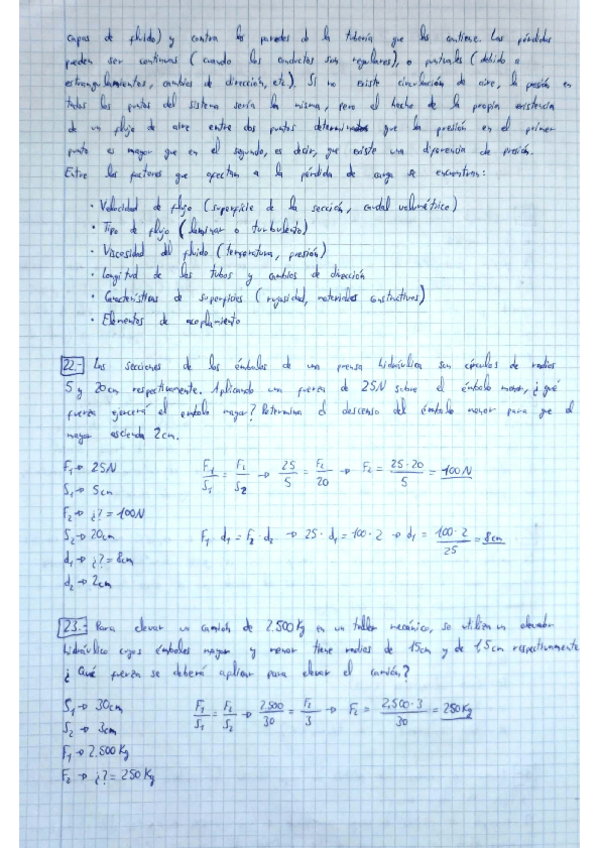 capas de fluido) y contra las paredes de la tubería que las contiene. Las pérdidas
pueden ser continuas (cuando los conductos son regulares), o puntuales (debido a
estrangulamientos, cambios de dirección, etc). Si no existe circulación de aire, la presión en
todos los puntos del sistema sería la misma, pero el hecho de la propia existencia
de un flujo de aire entre dos puntos determinados que la presión en el primer
punto es mayor que en el segundo, es decir, que existe una diferencia de presión.
Entre los factores que afectan a la pérdida de carga se encuentran:
· Velocidad de flujo (superficie de la sección, caudal volumétrico)
· Tipo de flujo (laminar o turbulento)
· Viscosidad del fluido (temperatura, presión)
· Longitud de los tubos y cambios de dirección
· Características de superficies (rugosidad, materiales constructivos)
· Elementos de acoplamiento
22.- Las secciones de los émbolos de una prensa hidráulica son círculos de radios
5 y 20cm respectivamente. Aplicando una fuerza de 25N sobre el émbolo menor, ¿qué
fuerza ejercerá el embolo mayor? Determina el descenso del émbolo menor para que el
mayor ascienda 2cm.
F₁→ 25N
S₁→ 5cm
F₂→ ¿?=100N
S₂→ 20cm
d₁→ ¿?= 8cm
d₂→ 2cm
F₁/S₁ = F₂/S₂ → 25/5 = F₂/20 → F₂ = 25·20/5 = 100N
F₁· d₁ = F₂· d₂ → 25· d₁ = 100·2 → d₁ = 100·2/25 = 8cm
23.- Para elevar un camión de 2.500Kg en un taller mecánico, se utiliza un elevador
hidráulico cuyos émbolos mayor y menor tiene radios de 15cm y de 1,5cm respectivamente
¿Qué fuerza se deberá aplicar para elevar el camión?
S₁→ 30cm
S₂→ 3cm
F₁→ 2.500Kg
F₂→ ¿?= 250Kg
F₁/S₁ = F₂/S₂ → 2.500/30 = F₂/3 → F₂ = 2.500·3/30 = 250Kg